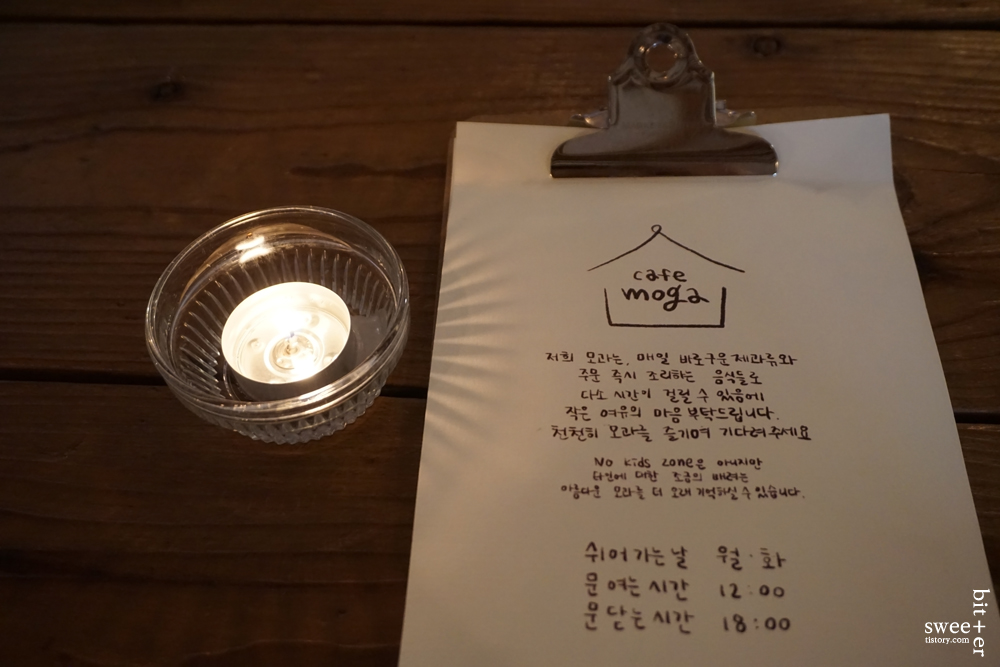 cafe
moga
저희 모과는, 매일 바로구운 제과류와
주문 즉시 조리하는 음식들로
다소 시간이 걸릴 수 있음에
작은 여유의 마음 부탁드립니다.
천천히 모과를 즐기며 기다려주세요
No Kids Zone은 아니지만
타인에 대한 조금의 배려는
아름다운 모과를 더 오래 기억하실 수 있습니다.
쉬어가는날 월·화
문 여는 시간 12:00
문 닫는 시간 18:00
bitter
sweet
tistory.com